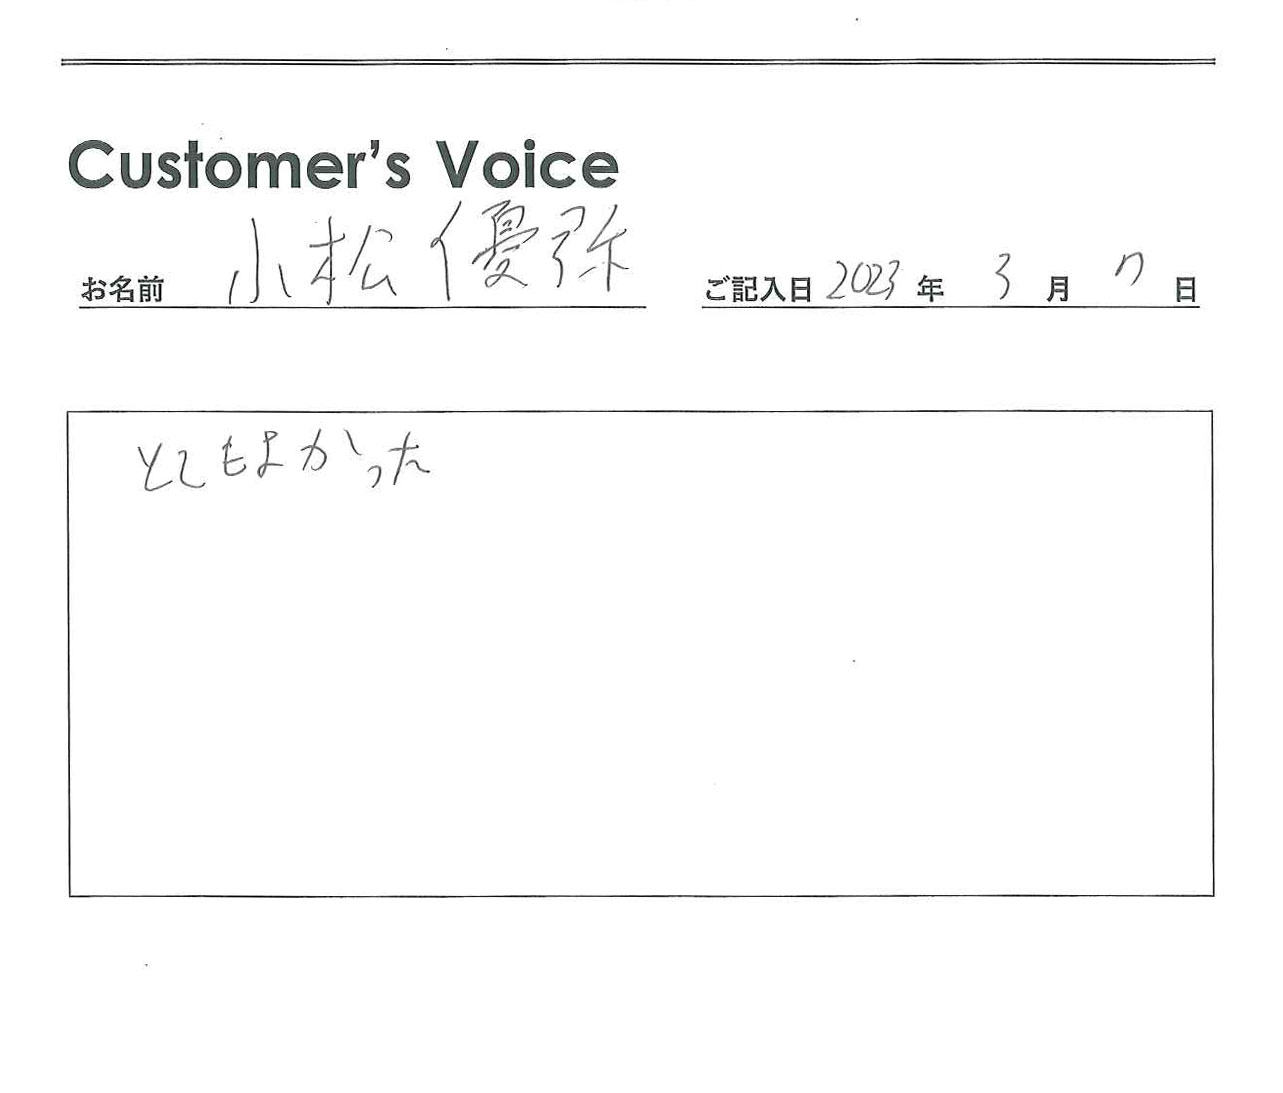 Customer's Voice
お名前 小松優弥 ご記入日 2023 年 3 月 7 日
とてもよかった